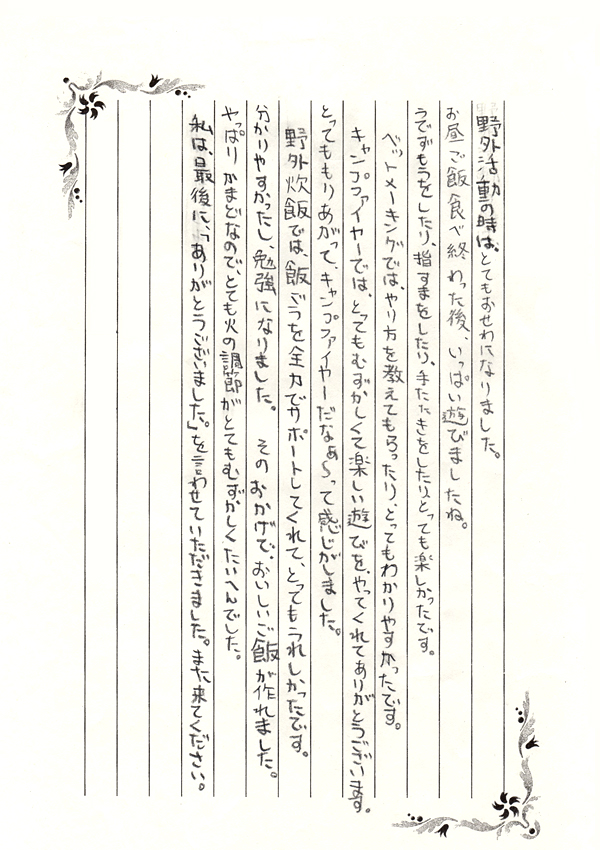 野外活動の時は、とてもおせわになりました。
お昼ご飯食べ終わった後、いっぱい遊びましたね。
うでずもうをしたり、指すまをしたり、手たたきをしたり、とっても楽しかったです。
ベットメーキングでは、やり方を教えてもらったり、とってもわかりやすかったです。
キャンプファイヤーでは、とってもむずかしくて楽しい遊びを、やってくれてありがとうございます。
とってももりあがって、キャンプファイヤーだなぁ〜って感じがしました。
野外炊飯では、飯ごうを全力でサポートしてくれて、とってもうれしかったです。
分かりやすかったし、勉強になりました。 そのおかげで、おいしいご飯が作れました。
やっぱりかまどなので、とても火の調節がとてもむずかしくたいへんでした。
私は、最後に、「ありがとうございました。」を言わせていただきました。また来てください。